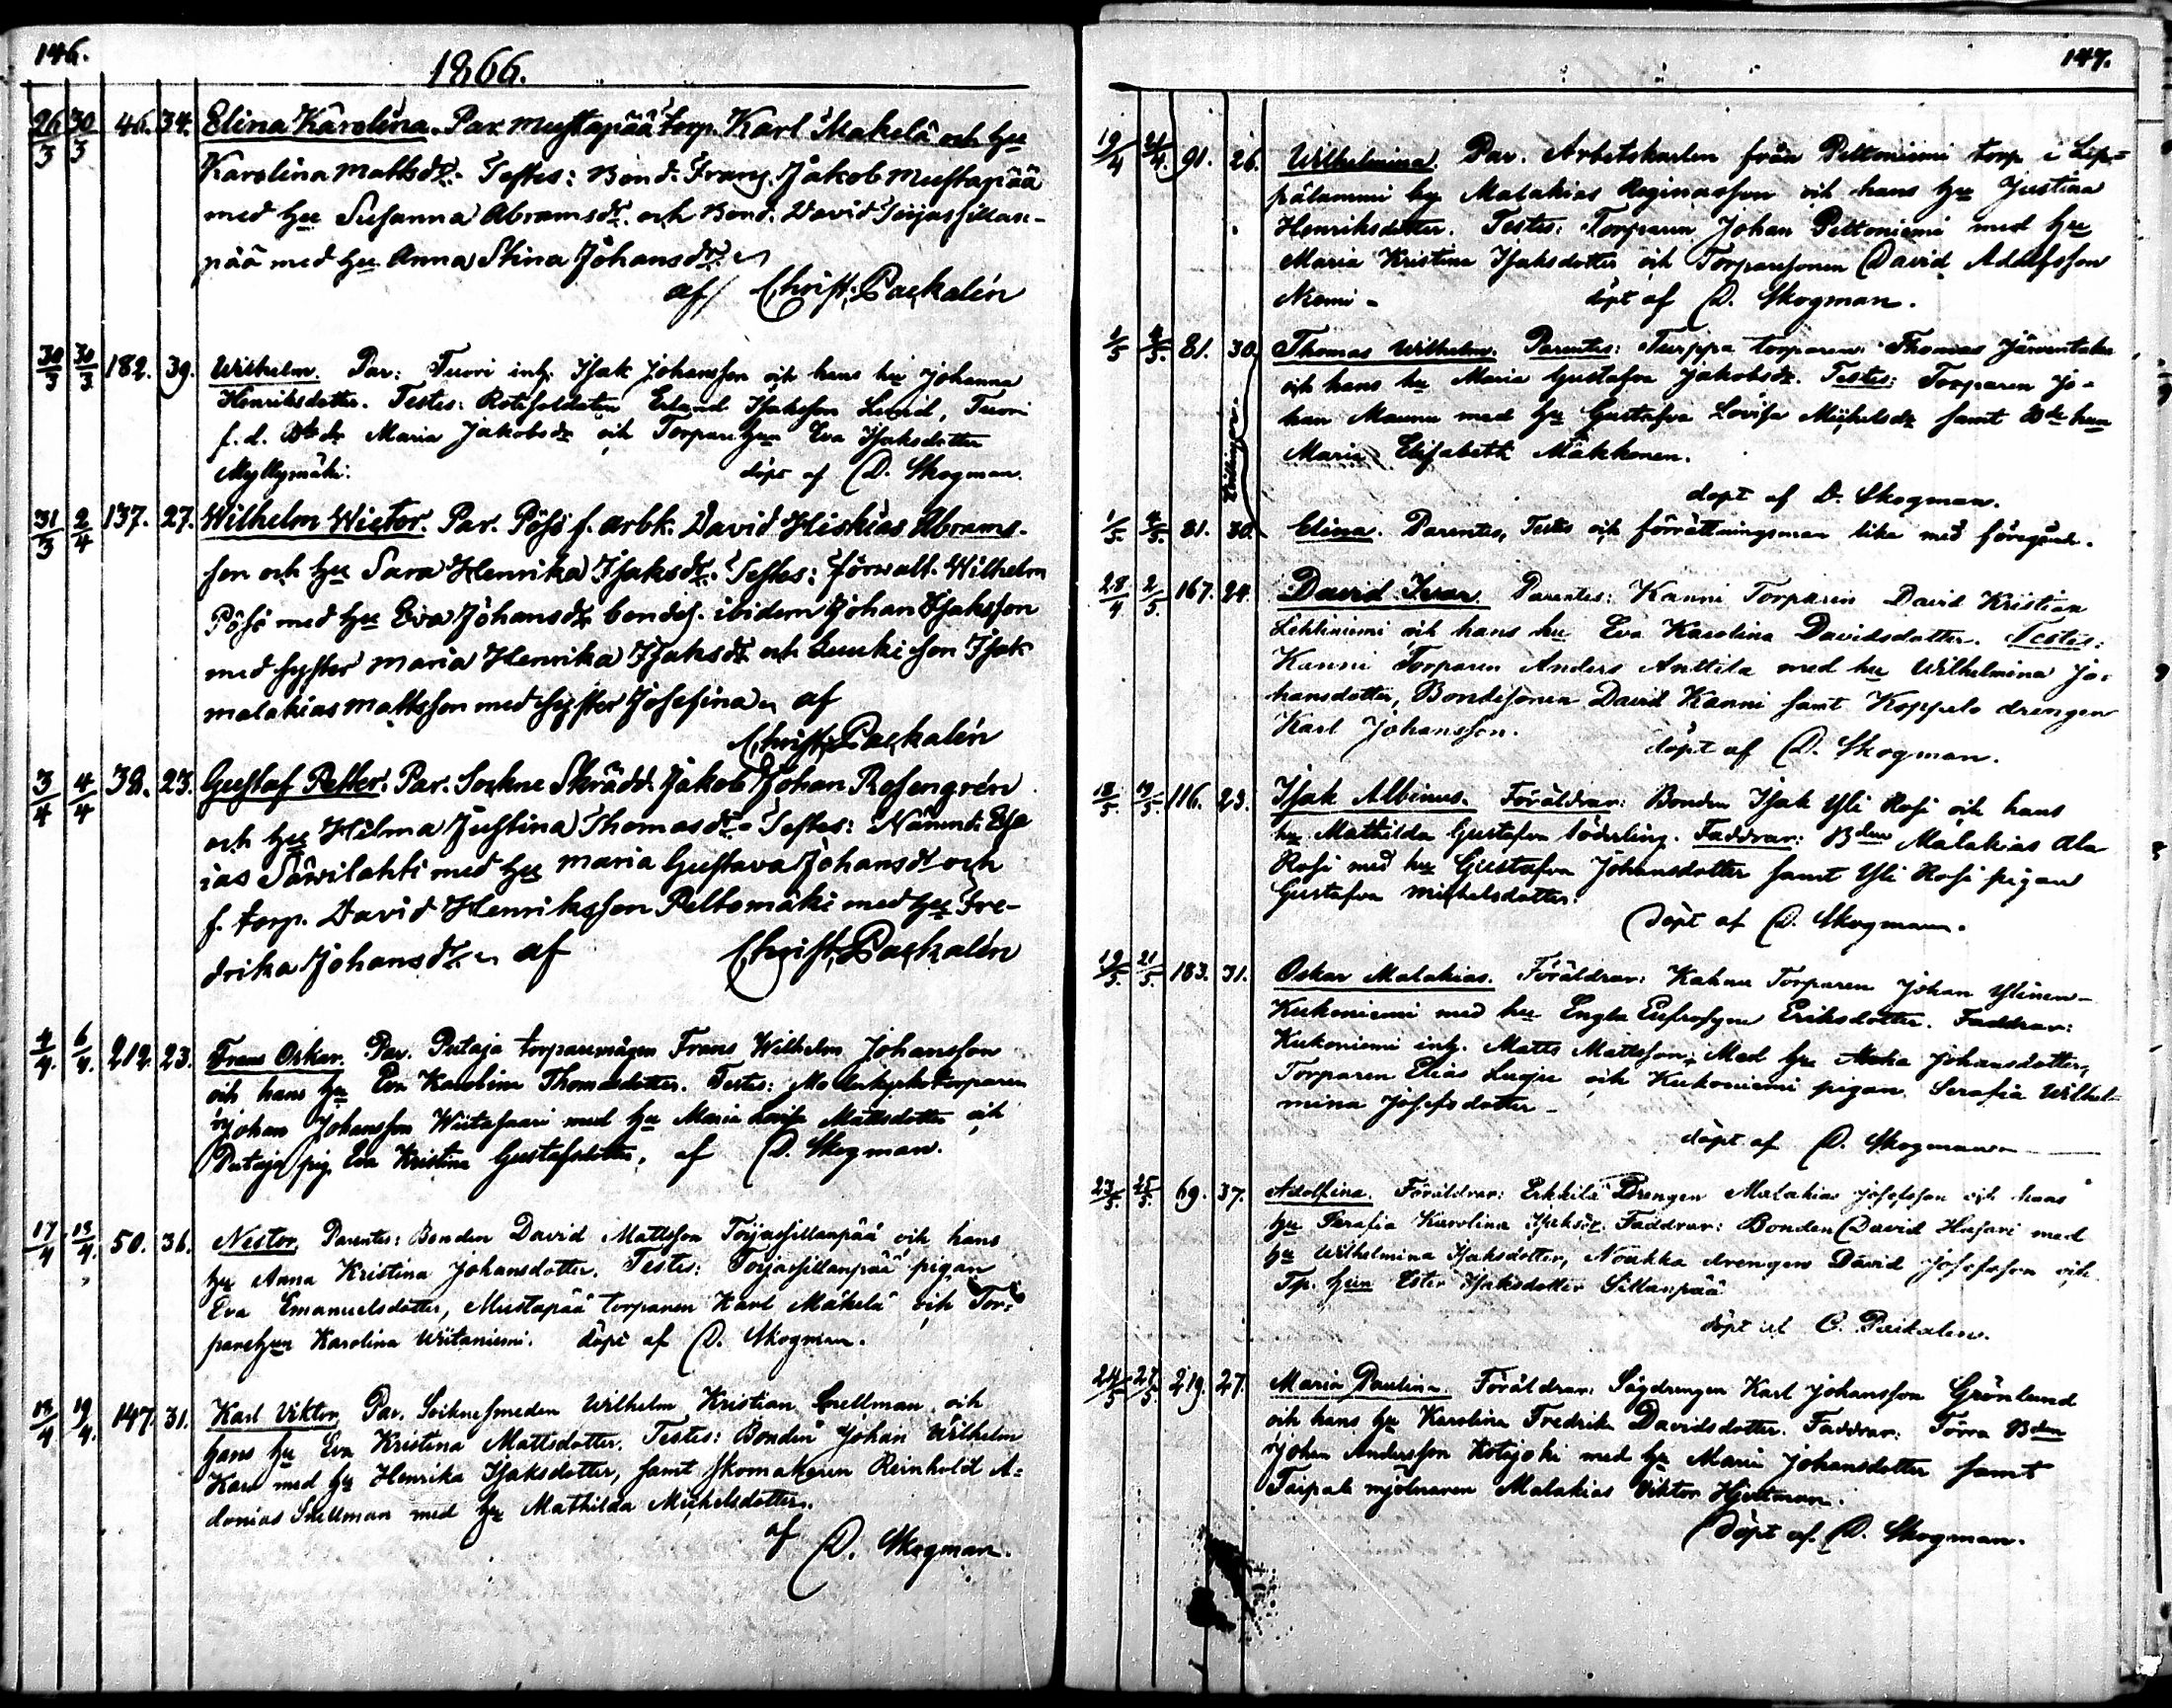 146.
1866.
26/3 30/3 46. 34. Elina Karolina. Par. Mustapää torp. Karl Mäkelä och Hu
Karolina Mattsdr. Testes: Bond. Franz Jakob Mustapää
med Hu Susanna Abramsdr. och Bond. David Töijassillan-
pää med Hu Anna Stina Johansdr.
af Christ. Paekalén
30/3 30/3 182. 39. Wilhelm. Par: Tuori inh. Isak Johansson och hans hu Johanna
Henriksdotter. Testes: Rotesoldaten Erland Isaksson Lunid, Tuori
f.d. Bdr Maria Jakobsdr och Torparehun Eva Isaksdotter
Myllymäki. döpt af D. Skogman.
31/3 2/4 137. 27. Wilhelm Wictor. Par. Pösö f. arbk. David Hiskias Abrams-
son och Hu Sara Henrika Isaksdr. Testes: förwalt. Wilhelm
Pösö med Hu Eva Johansdr bondes. ibidem Johan Isaksson
med syster Maria Henrika Isaksdr och Luuki son Isak
Malakias Mattsson med syster Josefina af
Christ. Paekalén
3/4 4/4 38. 23. Gustaf Petter. Par. Sockne Skrädd. Jakob Johan Rosengrén
och Hu Hilma Justina Thomasdr. Testes: Nämnd. Esa-
ias Säwilahti med Hu Maria Gustava Johansdr och
f. torp. David Henriksson Peltomäki med Hu Fre-
drika Johansdr. af Christ. Paekalén
4/4. 6/4. 212. 23. Frans Oskar. Par. Putaja torparemågen Frans Wilhelm Johansson
och hans Hu Eva Karolina Thomasdotter. Testes: Moderkyrko torparen
Johan Johansson Wiitasaari med Hu Maria Lovisa Mattsdotter och
Putaja pig. Eva Kristina Gustafsdotter. af D. Skogman.
17/4 18/4. 50. 36. Nestor. Parentes: Bonden David Mattsson Töijassillanpää och hans
hu Anna Kristina Johansdotter. Testes: Töijassillanpää pigan
Eva Emanuelsdotter, Mustapää torparen Karl Mäkelä och Tor-
parehun Karolina Wiitaniemi. döpt af D. Skogman.
18/4 19/4. 147. 31. Karl Viktor. Par. Socknesmeden Wilhelm Kristian Snellman och
hans hu Eva Kristina Mattsdotter. Testes: Bonden Johan Wilhelm
med hu Henrika Isaksdotter, samt skomakaren Reinhold A-
donias Snellman med hu Mathilda Michelsdotter.
af D. Skogman.
147.
19/4 21/4. 91. 26. Wilhelmina. Par. Arbetskarlen från Peltoniemi torp i Lip-
pälammi by Malakias Reginasson och hans hu Justina
Henriksdotter. Testes: Torparen Johan Peltoniemi med hu
Maria Kristina Isaksdotter och Torparesonen David Adolfsson
Niemi - döpt af D. Skogman.
1/5 4/5. 81. 30. Thomas Wilhelm. Parentes: Turppa torparen Thomas Järventaka
och hans hu Maria Gustafva Jakobsdr. Testes: Torparen Jo-
han Maunu med hu Gustafva Lovisa Michelsdr samt Bde hun
Maria Elisabeth Mäkkonen.
döpt af D. Skogman.
Tvillingar.
1/5. 4/5. 81. 30. Elina. Parentes, Testes och förrättningsman lika med föregåen.
28/4 2/5. 167. 24. David Iwar. Parentes: Kanni Torparen David Kristian
Lehtiniemi och hans hu Eva Karolina Davidsdotter. Testes:
Kanni Torparen Anders Anttila med hu Wilhelmina Jo-
hansdotter, Bondesonen David Kanni samt Koppelo drengen
Karl Johansson. döpt af D. Skogman.
18/5. 19/5. 116. 23. Isak Albinus. Föräldrar: Bonden Isak Yli Rosi och hans
hu Mathilda Gustafva Söderling. Faddrar: Bden Malakias Ala
Rosi med hu Gustafva Johansdotter samt Yli Rosi pigan
Gustafva Michelsdotter.
döpt af D. Skogman.
19/5. 21/5. 183. 31. Oskar Malakias. Föräldrar: Torparen Johan Ylinen-
Kukoniemi med hu Engla Eufrosyne Eriksdotter. Faddrar:
Kukoniemi inh. Matts Mattsson, Med hu Johansdotter,
Torparen Elias och Kukoniemi pigan Serafia Wilhel-
mina Josefsdotter -
döpt af D. Skogman
23/5. 25/5. 69. 37. Adolfina. Föräldrar: Erkkilä Drengen Malakias Josefsson och hans
hu Serafia Karolina Isaksdr. Faddrar: Bonden David med
hu Wilhelmina Isaksdotter, Noukka drengen David Josefsson och
Tp. hun Ester Isaksdotter Sillanpää
döpt af C. Paekalen.
24/5 27/5 219. 27. Maria Paulina. Föräldrar: Sågdrengen Karl Johansson Grönlund
och hans hu Karolina Fredrika Davidsdotter. Faddrar: Törra Bden
Johan Andersson Kotajoki med hu Maria Johansdotter samt
Taipale mjölnaren Malakias Viktor Hjeltman.
döpt af D. Skogman.